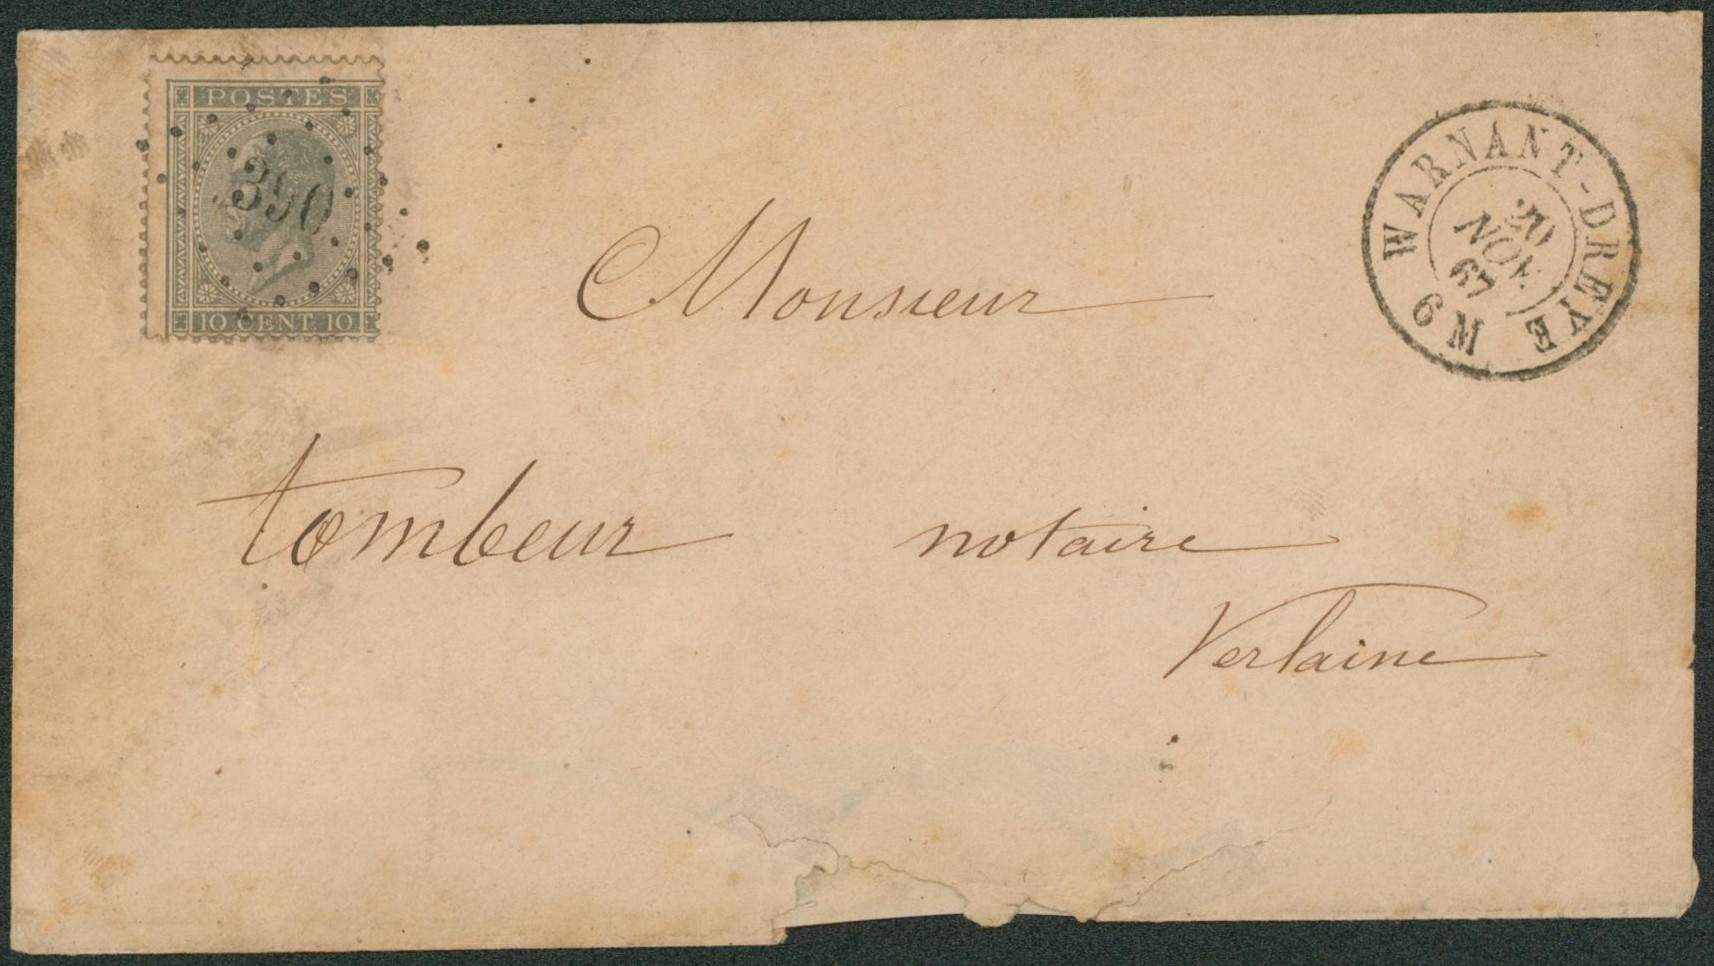 POSTES
390
10 CENT. 10
WARNANT-DREYE
20
NOV
67
6 M
Monsieur
tombeur notaire
Verlaine